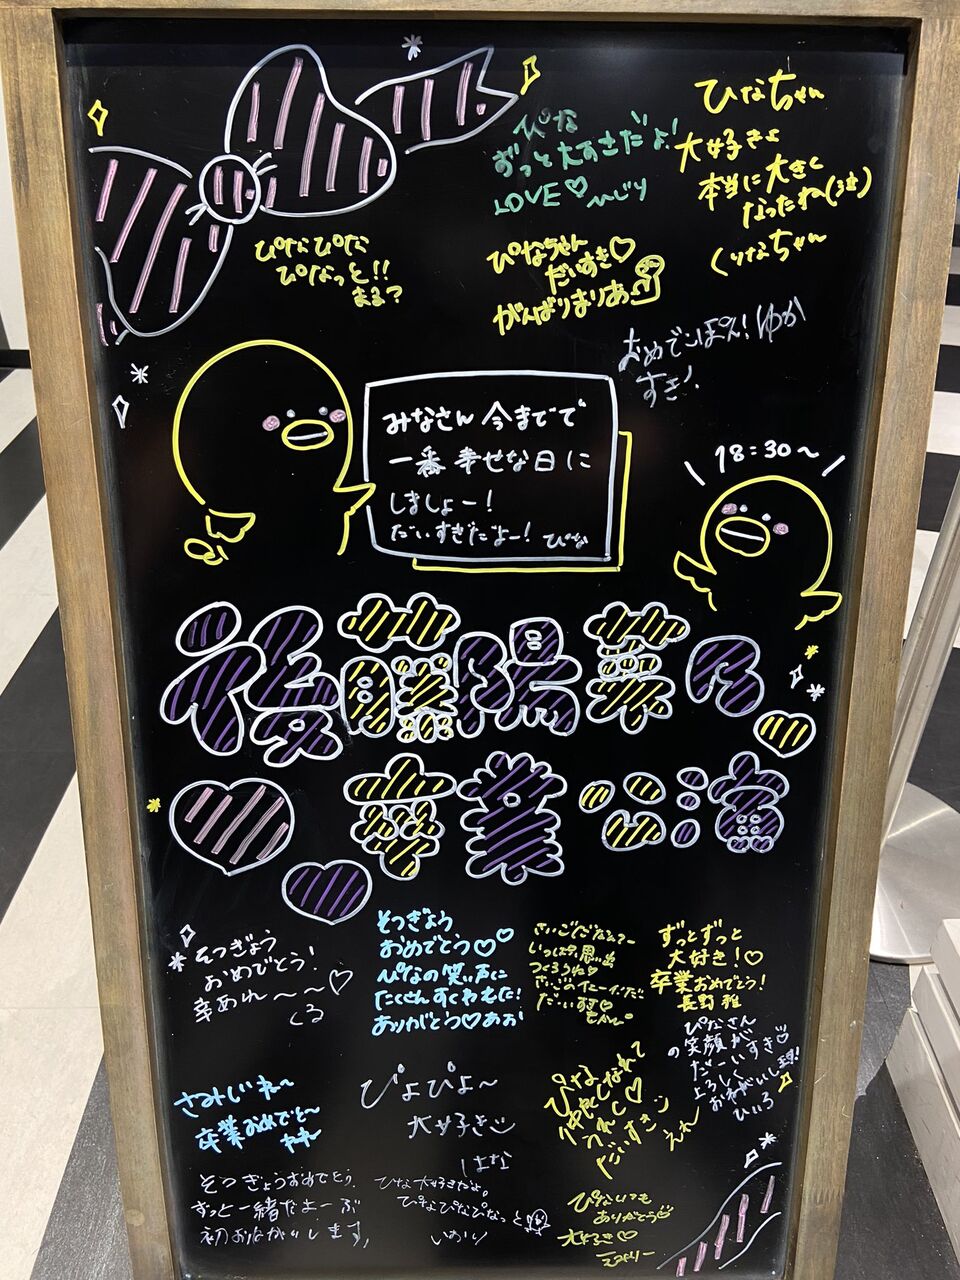 ぴな
ずっと大すきだよ!
LOVE♡ ひじり
ひなちゃん
大好きよ
本当に大きく
なったね(泣)
くりなちゃん
ぴなぴな
ぴなっと!!
まる?
ぴなちゃん
だいすき♡
がんばりまりあ
おめでこぽえ!ゆか
すき!
みなさん 今までで
一番 幸せな日に
しましょー!
だいすきだよー! ぴな
18:30〜
後藤陽菜乃
卒業公演
そつぎょう
おめでとう!
幸あれ〜〜♡
くる
そつぎょう
おめでとう♡♡
ぴなの笑い声に
たくさんすくわれた!
ありがとう♡あお
さいごだなんてー
いっぱい思い出
つくろうね♡
ずっとずっと
大好き!♡
卒業おめでとう!
長野 雅
ぴなさん
の笑顔が
だーいすき♡
よろしく
おねがいします!
ひいろ
さみしいねー
卒業おめでと〜
ぴよぴよ〜
大好き
はな
ぴな
仲良くなれて
うれし♡
だいすき
えれ
そつぎょうおめでとう
ずっと一緒だよーぶ
初おねがいします!
ひな大好きだよ。
ぴなぴなぴなっと
いおり
ぴないつも
ありがとう♡
大好き♡